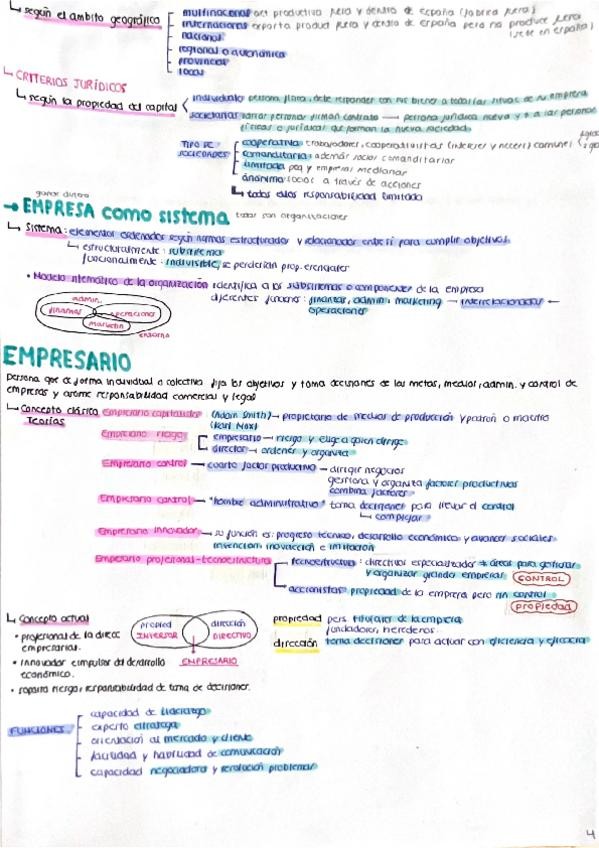 ↳ según el ámbito geográfico
multinacional act productiva fuera y dentro de españa (fabrica fuera)
internacional exporta product fuera y dentro de españa pero no produce fuera
(sede en españa)
nacional
regional o autonómica
provincial
local
↳ CRITERIOS JURÍDICOS
↳ según la propiedad del capital
individuales persona física, debe responder con sus bienes a todas las de su empresa
societarias varias personas firman contrato → persona jurídica nueva y a las personas
físicas o jurídicas que forman la nueva sociedad
TIPO DE SOCIEDADES
cooperativa: trabajadores, cooperativistas (intereses y neces) comunes
comanditaria: además socios comanditarios
limitada peq y empresas medianas
anónima socios a través de acciones
↳ todas ellas responsabilidad limitada
ganar dinero
→ EMPRESA como sistema todas son organizaciones
↳ Sistema: elementos ordenados según normas estructurados y relacionados entre sí para cumplir objetivos
↳ estructuralmente: subsistemas
funcionalmente: indivisible, se perderían prop. esenciales
• Modelo sistemático de la organización identifica a los subsistemas o componentes de la empresa
diferentes funciones: finanzas, admin, marketing → interrelacionadas ←
operaciones
admin.
finanzas
operaciones
marketin
entorno
EMPRESARIO
Persona que de forma individual o colectiva fija los objetivos y toma decisiones de las metas, medios, admin. y control de
empresas y asume responsabilidad comercial y legal
↳ Concepto clásico Empresario capitalista (Adam Smith) → propietario de medios de producción y patrón o maestro
Teorías (Karl Max)
Empresario riesgo
empresario → riesgo y elige a quien dirige
director → ordenar y organiza
Empresario control → cuarto factor productivo → dirigir negocios
gestiona y organiza factores productivos
combina factores
Empresario control → "hombre administrativo" toma decisiones para llevar el control
↳ complejas
Empresario innovador → su función es: progreso técnico, desarrollo económico y avances sociales
invención innovación e imitación
Empresario profesional-tecnoestructura
tecnoestructura: directivos especializados ≠ áreas para gestionar
y organizar grandes empresas CONTROL
accionistas propiedad de la empresa pero sin control
propiedad
↳ Concepto actual
• profesional de la direcc
empresarial.
• innovador e impulsor del desarrollo
económico.
• soporta riesgo y responsabilidad de toma de decisiones.
propied dirección
INVERSOR DIRECTIVO
EMPRESARIO
propiedad pers. titulares de la empresa
fundadores, herederos.
dirección toma decisiones para actuar con eficiencia y eficacia
FUNCIONES
capacidad de liderazgo
experto estratega
orientación al mercado y cliente
facilidad y habilidad de comunicación
capacidad negociadora y resolución problemas
4